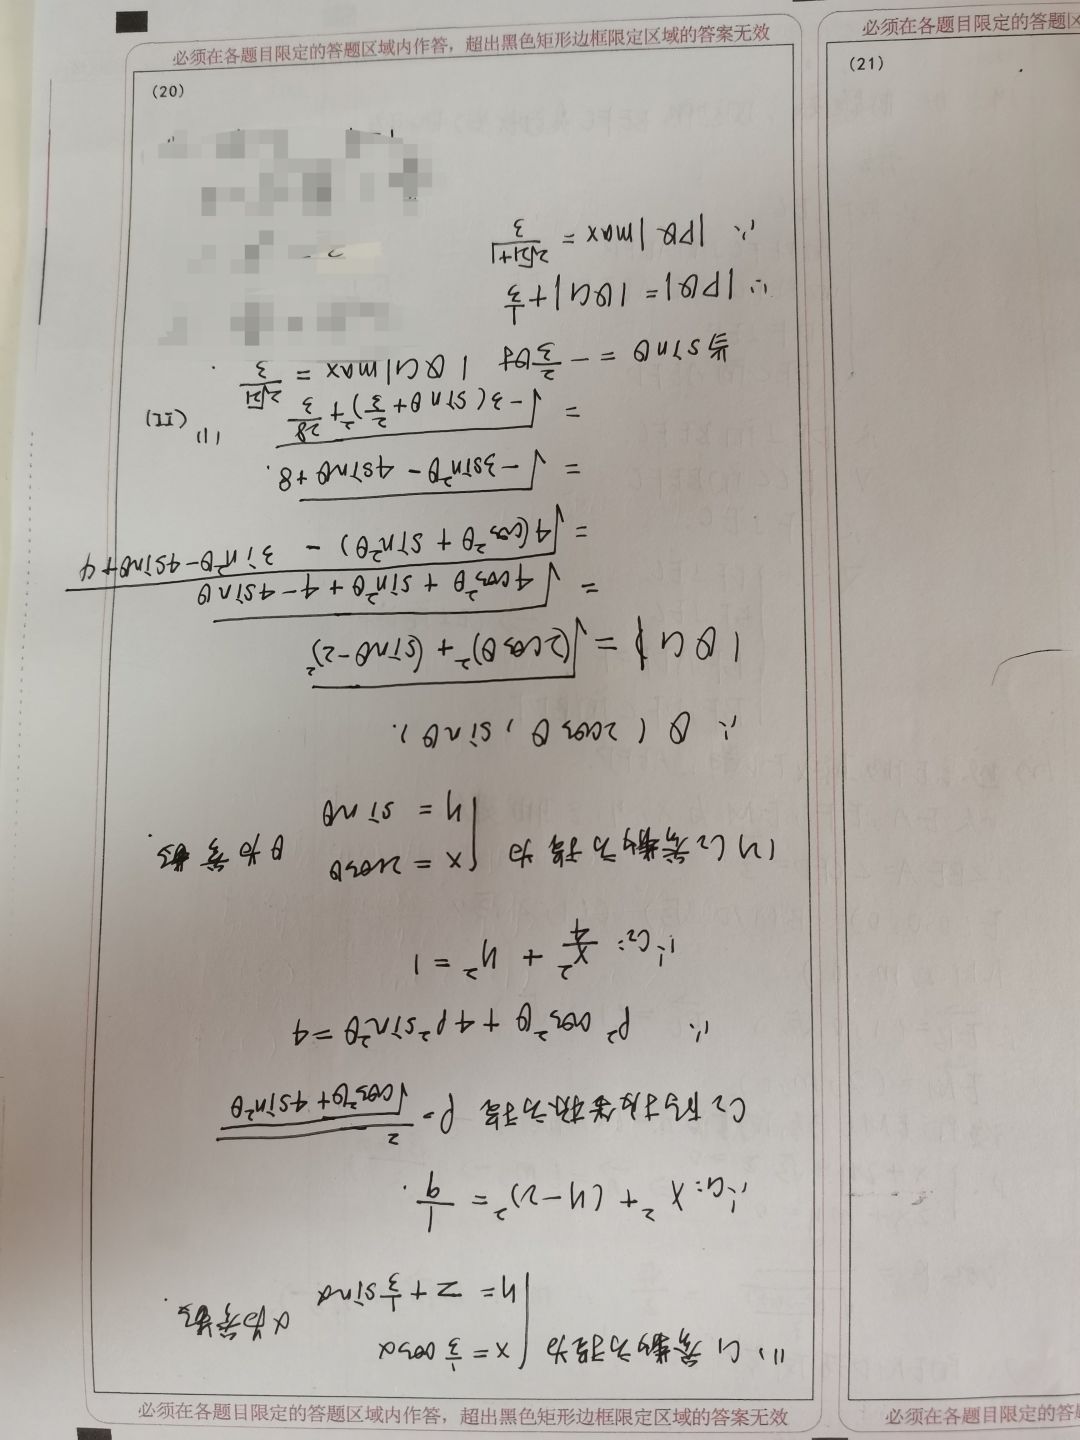 必须在各题目限定的答题区域内作答，超出黑色矩形边框限定区域的答案无效
(20)
(1) C₁参数方程为 { x = 1/3 cosα
y = 2 + 1/3 sinα
α为参数.
∴ C₁: x² + (y-2)² = 1/9.
C₂的极坐标方程 ρ = 2/√(cos²θ + 4sin²θ)
∴ ρ²cos²θ + 4ρ²sin²θ = 4
∴ C₂: x²/4 + y² = 1
(2) C₂参数方程为 { x = 2cosθ
y = sinθ
θ为参数.
∴ Q (2cosθ, sinθ).
|QC₁| = √((2cosθ)² + (sinθ-2)²)
= √(4cos²θ + sin²θ + 4 - 4sinθ)
= √(4(cos²θ + sin²θ) - 3sin²θ - 4sinθ + 4)
= √(-3sin²θ - 4sinθ + 8).
= √(-3(sinθ + 2/3)² + 28/3)
(II)
当sinθ = -2/3时 |QC₁|max = 2√21/3.
∴ |PQ| = |QC₁| + 1/3
∴ |PQ|max = (2√21+1)/3
必须在各题目限定的答题区域内作答，超出黑色矩形边框限定区域的答案无效
必须在各题目限定的答题区
(21)
必须在各题目限定的答